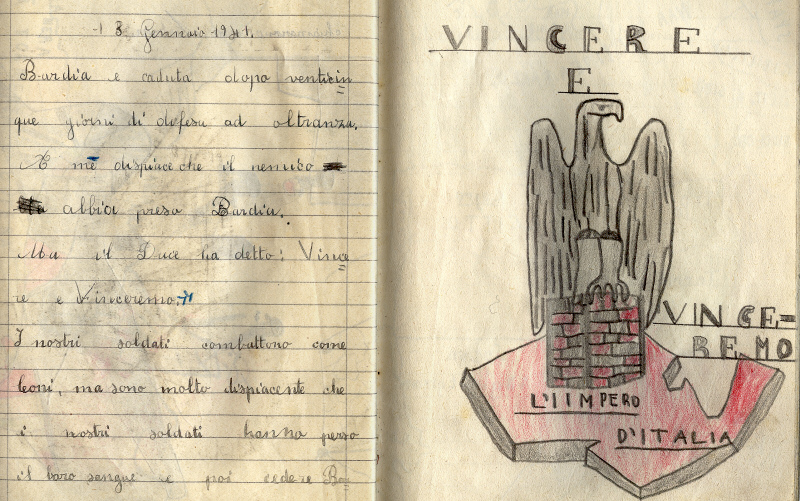 13 Gennaio 1941.
Bardia e caduta dopo venticin=
que giorni di difesa ad oltranza.
A me dispiace che il nemico
abbia preso Bardia.
Ma il Duce ha detto: Vince=
re e Vinceremo.
I nostri soldati combattono come
leoni, ma sono molto dispiacente che
i nostri soldati hanno perso
il loro sangue e poi cedere Ba=
VINCERE
E
VINCE=
REMO
L'IIMPERO
D'ITALIA